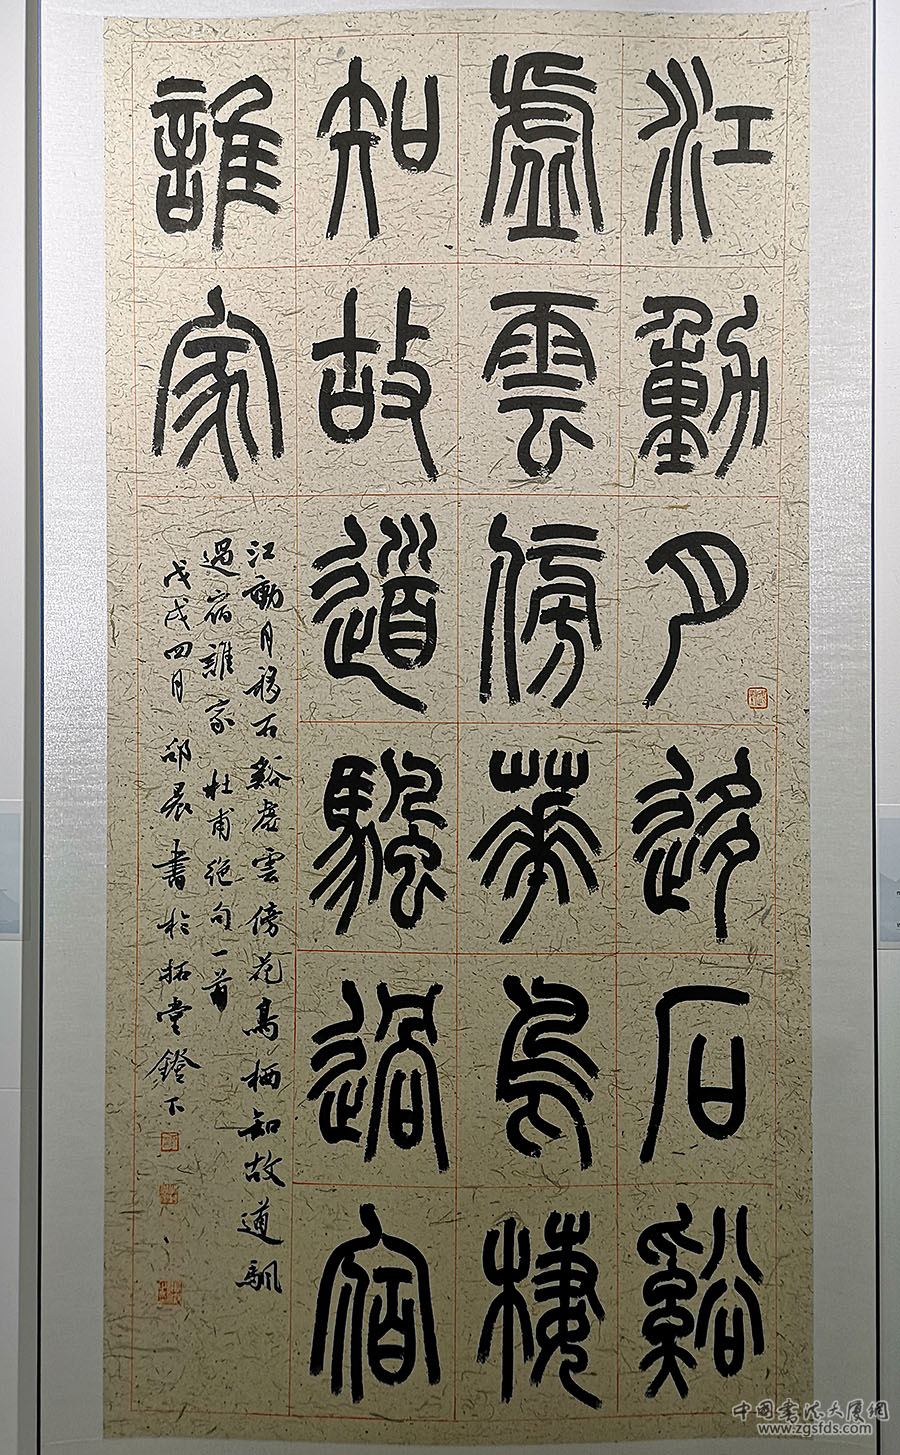 江動月迻石谿
虛雲傍華鳥棲
知故道颿過宿
誰家
江動月移石谿虛雲傍花鳥栖知故道颿
過宿誰家 杜甫絕句一首
戊戌四月 晨書於拓堂鐙下
中國書法大廈網
www.zgsfds.com